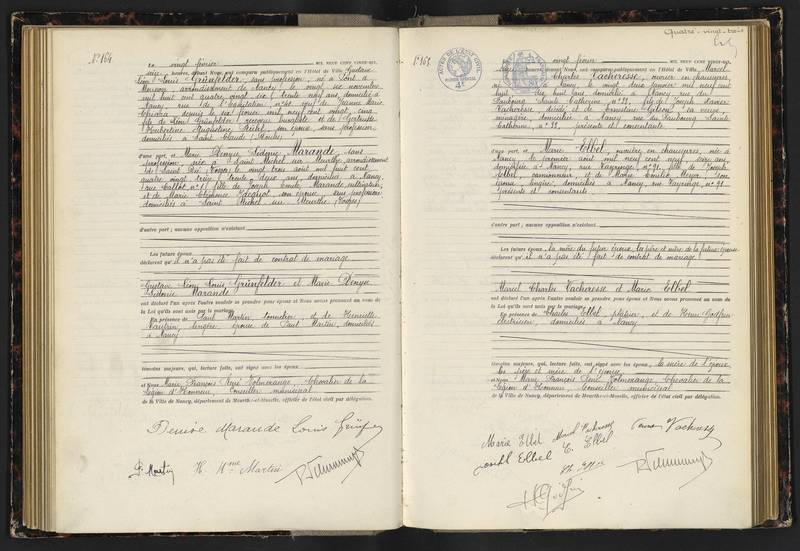 N° 164
Le vingt février MIL NEUF CENT VINGT-SIX,
seize heures, devant Nous ont comparu publiquement en l'Hôtel de Ville Gustave
Rémy Louis Grünfelder, sans profession, né à Pont à
Mousson, arrondissement de Nancy, le vingt six novembre
mil huit cent quatre vingt six, trente neuf ans, domicilié à
Nancy, rue de l'Abbaye n° 40, veuf de Jeanne Marie
fils de Rémy Grünfelder et de Gertrude
Augustine son épouse, sans profession,
domiciliés à Saint Claude
d'une part, et Marie Denyse Sidonie Marande, sans
profession, née à Saint Michel sur Meurthe, arrondissement
de Saint Dié (Vosges) le vingt trois août mil huit cent
quatre vingt treize, trente deux ans, domiciliée à Nancy,
rue Callot n° 1, fille de Joseph Emile Marande, cultivateur,
et de Marie son épouse, sans profession,
domiciliés à Saint Michel sur Meurthe (Vosges)
d'autre part; aucune opposition n'existant
Les futurs époux
déclarent qu'il n'a pas été fait de contrat de mariage.
Gustave Rémy Louis Grünfelder et Marie Denyse
Sidonie Marande
ont déclaré l'un après l'autre vouloir se prendre pour époux et Nous avons prononcé au nom de
la Loi qu'ils sont unis par le mariage.
En présence de Paul Martin, et de Henriette
lingère, épouse de Paul Martin, domiciliés
à Nancy
témoins majeurs, qui, lecture faite, ont signé avec les époux
et Nous Marie François René Tolmerange, Chevalier de la
Légion d'Honneur, Conseiller municipal
de la Ville de Nancy, département de Meurthe-et-Moselle, officier de l'état civil par délégation.
Denise Marande Louis Grünfelder
P. Martin H. Mme Martin
Quatre-vingt-trois
N° 165
Le vingt février MIL NEUF CENT VINGT-SIX,
heures, devant Nous ont comparu publiquement en l'Hôtel de Ville Marcel
Charles Vacheresse, ouvrier en chaussures,
né à Nancy le vingt deux janvier mil neuf cent
huit, dix huit ans, domicilié à Nancy, rue du
Faubourg Sainte Catherine, n° 33, fils de Joseph Xavier
Vacheresse, décédé, et de Ernestine sa veuve,
ménagère, domiciliée à Nancy, rue du Faubourg Sainte
Catherine, n° 33, présente et consentante
d'une part, et Marie Elbel, ouvrière en chaussures, née à
Nancy le premier août mil neuf cent neuf, seize ans,
domiciliée à Nancy, rue n° 91, fille de Joseph
Elbel, camionneur, et de Marie Emilie Meyer, son
épouse, lingère, domiciliés à Nancy, rue n° 91,
présents et consentants
d'autre part; aucune opposition n'existant
Les futurs époux, la mère du futur époux, les père et mère de la future épouse
déclarent qu'il n'a pas été fait de contrat de mariage.
Marcel Charles Vacheresse et Marie Elbel
ont déclaré l'un après l'autre vouloir se prendre pour époux et Nous avons prononcé au nom de
la Loi qu'ils sont unis par le mariage.
En présence de Charles Elbel, plâtrier, et de Henri
électricien, domiciliés à Nancy
témoins majeurs, qui, lecture faite, ont signé avec les époux, la mère de l'époux,
les père et mère de l'épouse
et Nous Marie François René Tolmerange, Chevalier de la
Légion d'Honneur, Conseiller municipal
de la Ville de Nancy, département de Meurthe-et-Moselle, officier de l'état civil par délégation.
Marie Elbel Marcel Vacheresse
Joseph Elbel C. Elbel